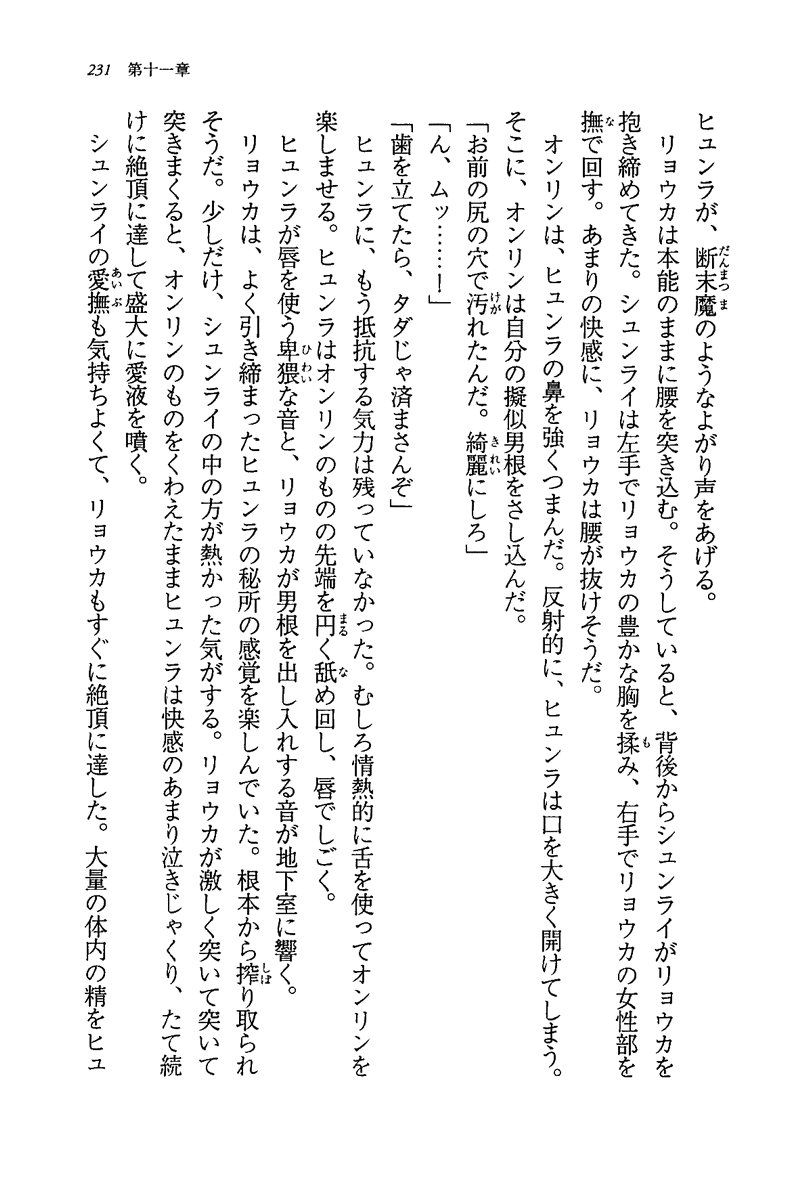 231 第十一章
ヒュンラが、断末魔のようなよがり声をあげる。
リョウカは本能のままに腰を突き込む。そうしていると、背後からシュンライがリョウカを
抱き締めてきた。シュンライは左手でリョウカの豊かな胸を揉み、右手でリョウカの女性部を
撫で回す。あまりの快感に、リョウカは腰が抜けそうだ。
オンリンは、ヒュンラの鼻を強くつまんだ。反射的に、ヒュンラは口を大きく開けてしまう。
そこに、オンリンは自分の擬似男根をさし込んだ。
「お前の尻の穴で汚れたんだ。綺麗にしろ」
「ん、ムッ……！」
「歯を立てたら、タダじゃ済まさんぞ」
ヒュンラに、もう抵抗する気力は残っていなかった。むしろ情熱的に舌を使ってオンリンを
楽しませる。ヒュンラはオンリンのものの先端を円く舐め回し、唇でしごく。
ヒュンラが唇を使う卑猥な音と、リョウカが男根を出し入れする音が地下室に響く。
リョウカは、よく引き締まったヒュンラの秘所の感覚を楽しんでいた。根本から搾り取られ
そうだ。少しだけ、シュンライの中の方が熱かった気がする。リョウカが激しく突いて突いて
突きまくると、オンリンのものをくわえたままヒュンラは快感のあまり泣きじゃくり、たて続
けに絶頂に達して盛大に愛液を噴く。
シュンライの愛撫も気持ちよくて、リョウカもすぐに絶頂に達した。大量の体内の精をヒュ